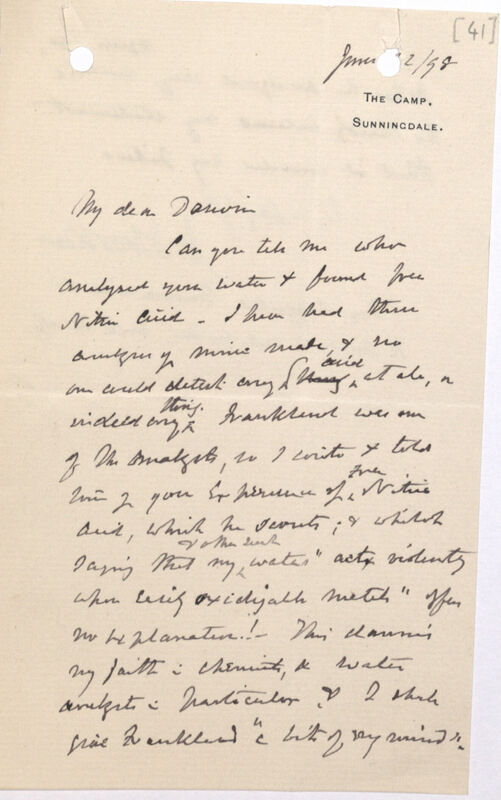 [41]
June 22/98
THE CAMP,
SUNNINGDALE.
My dear Darwin
Can you tell me who
analysed your water & found free
Nitric Acid – I have had three
analyses of mine made, & no
one could detect any acid at all, or
indeed any thing. Frankland was one
of the analysts, so I wrote & told
him of your Experience of free Nitric
Acid, which he scouts; & whilst
saying that my & other such water "acts violently
upon easily oxidizable metals" offers
no explanation!! – This
my faith in chemists, & water
analysts in particular, & I shall
give Frankland "a bit of my mind".